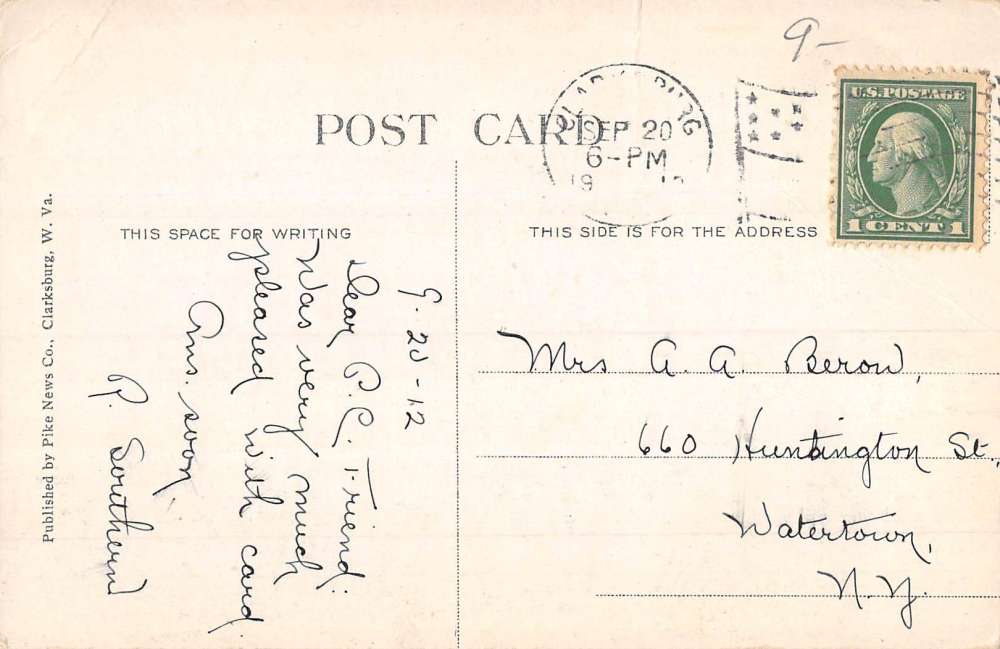 9-
POST CARD
CLARKSBURG
SEP 20
6-PM
U.S. POSTAGE
1 CENT 1
THIS SPACE FOR WRITING
THIS SIDE IS FOR THE ADDRESS
Published by Pike News Co., Clarksburg, W. Va.
9-20-12
Dear P.C. Friend:
Was very much
pleased with card.
Ans. soon,
R. Southern
Mrs A. A. Berow,
660 Huntington St.,
Watertown,
N.Y.